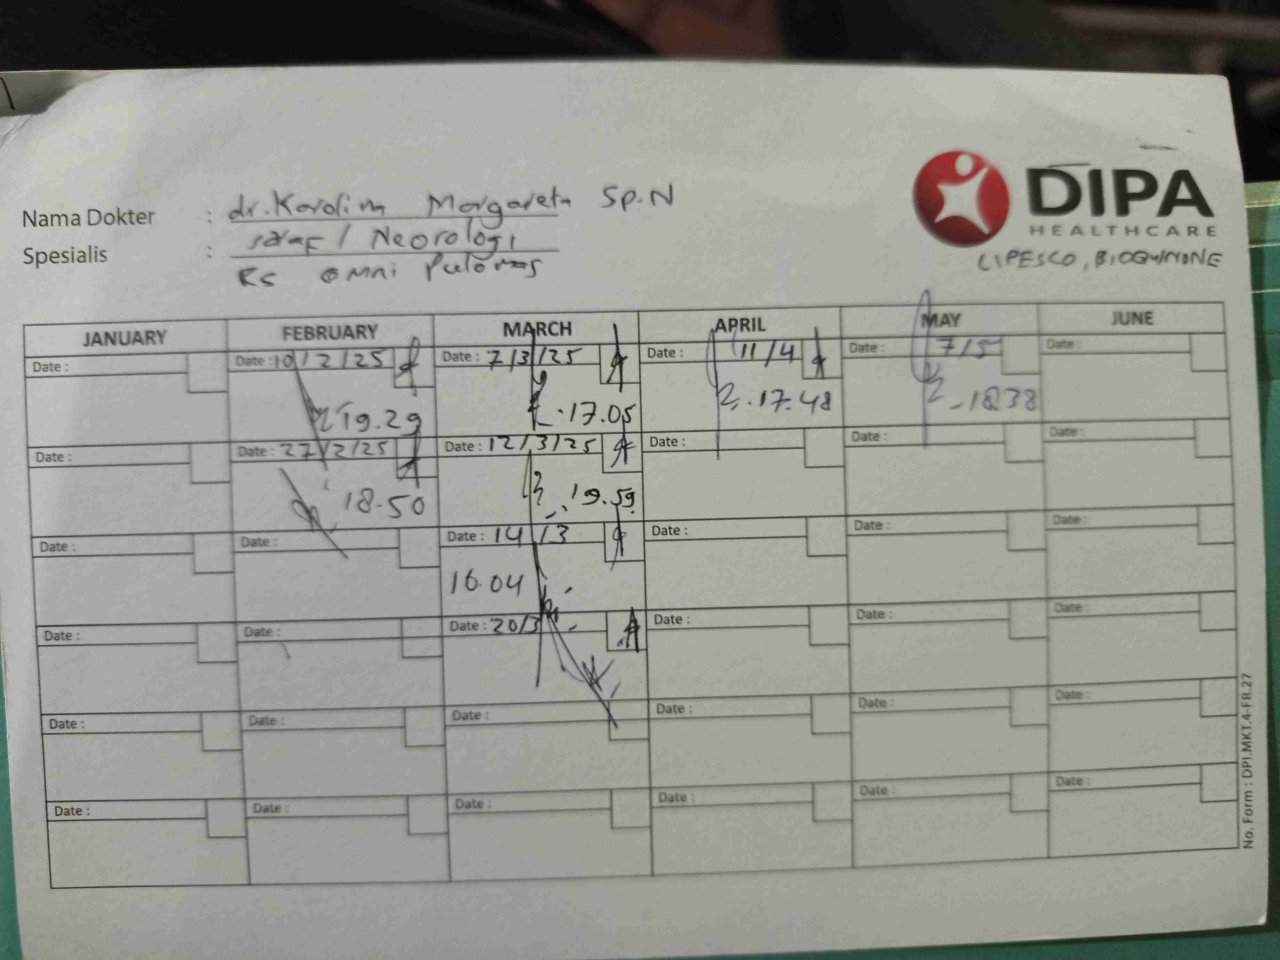 DIPA
HEALTHCARE
LIPESCO, BIOQUINONE
Nama Dokter : dr. Karolim Margareta Sp.N
Spesialis : saraf / Neorologi
RS omni Pulomas
JANUARY FEBRUARY MARCH APRIL MAY JUNE
Date : Date : 10/2/25 Date : 7/3/25 Date : 11/4 Date : 7/5 Date :
19.29 17.05 17.48 1838
Date : Date : 27/2/25 Date : 12/3/25 Date : Date : Date :
18.50 19.59
Date : Date : Date : 14/3 Date : Date : Date :
16.04
Date : Date : Date : 20/3 Date : Date : Date :
Date : Date : Date : Date : Date : Date :
Date : Date : Date : Date : Date : Date :
No. Form : DPI.MKT.4-FR.27